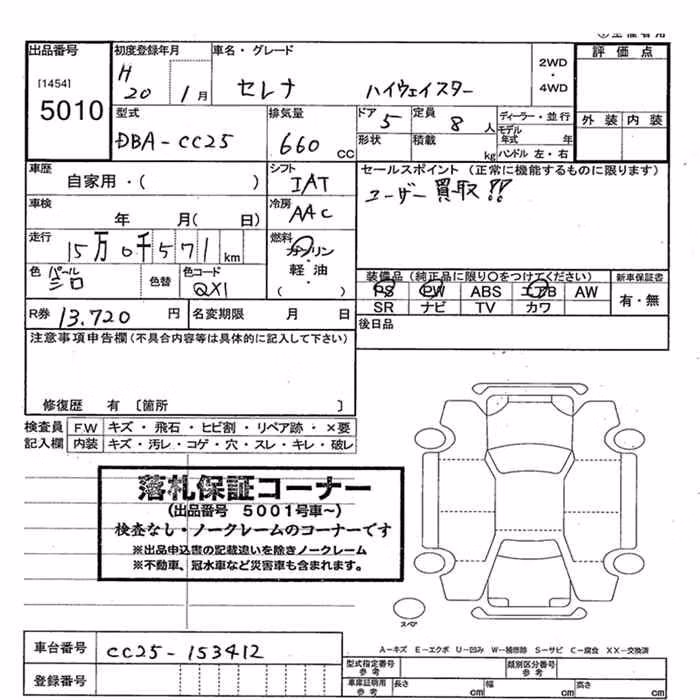 出品番号
[1454]
5010
初度登録年月
H
20 1月
車名・グレード
セレナ ハイウェイスター
2WD
・
4WD
評価点
型式
DBA-CC25
排気量
660 CC
ドア
5
定員
8 人
ディーラー・並行
モデル年式 年
外装 内装
形状
積載 kg
ハンドル 左・右
車歴
自家用・( )
シフト
IAT
セールスポイント (正常に機能するものに限ります)
ユーザー買取!!
車検
年 月( 日)
冷房
AAC
走行
15万0千571km
燃料
ガソリン
軽油
( ・ )
色 パール
シロ
色替
色コード
QX1
装備品(純正品に限り○をつけてください)
新車保証書
PS PW ABS エアB AW
有・無
SR ナビ TV カワ
R券 13,720 円
名変期限 月 日
後日品
注意事項申告欄(不具合内容等は具体的に記入して下さい)
修復歴 有 〔箇所 〕
検査員
記入欄
FW キズ・飛石・ヒビ割・リペア跡・×要
内装 キズ・汚レ・コゲ・穴・スレ・キレ・破レ
落札保証コーナー
(出品番号 5001号車~)
検査なし・ノークレームのコーナーです
※出品申込書の記載違いを除きノークレーム
※不動車、冠水車など災害車も含まれます。
スペア
A-キズ E-エクボ U-凹み W-補修跡 S-サビ C-腐食 XX-交換済
車台番号 CC25-153412
登録番号
型式指定番号
参考
類別区分番号
参考
車庫証明用
参考
長さ cm 幅 cm 高さ cm